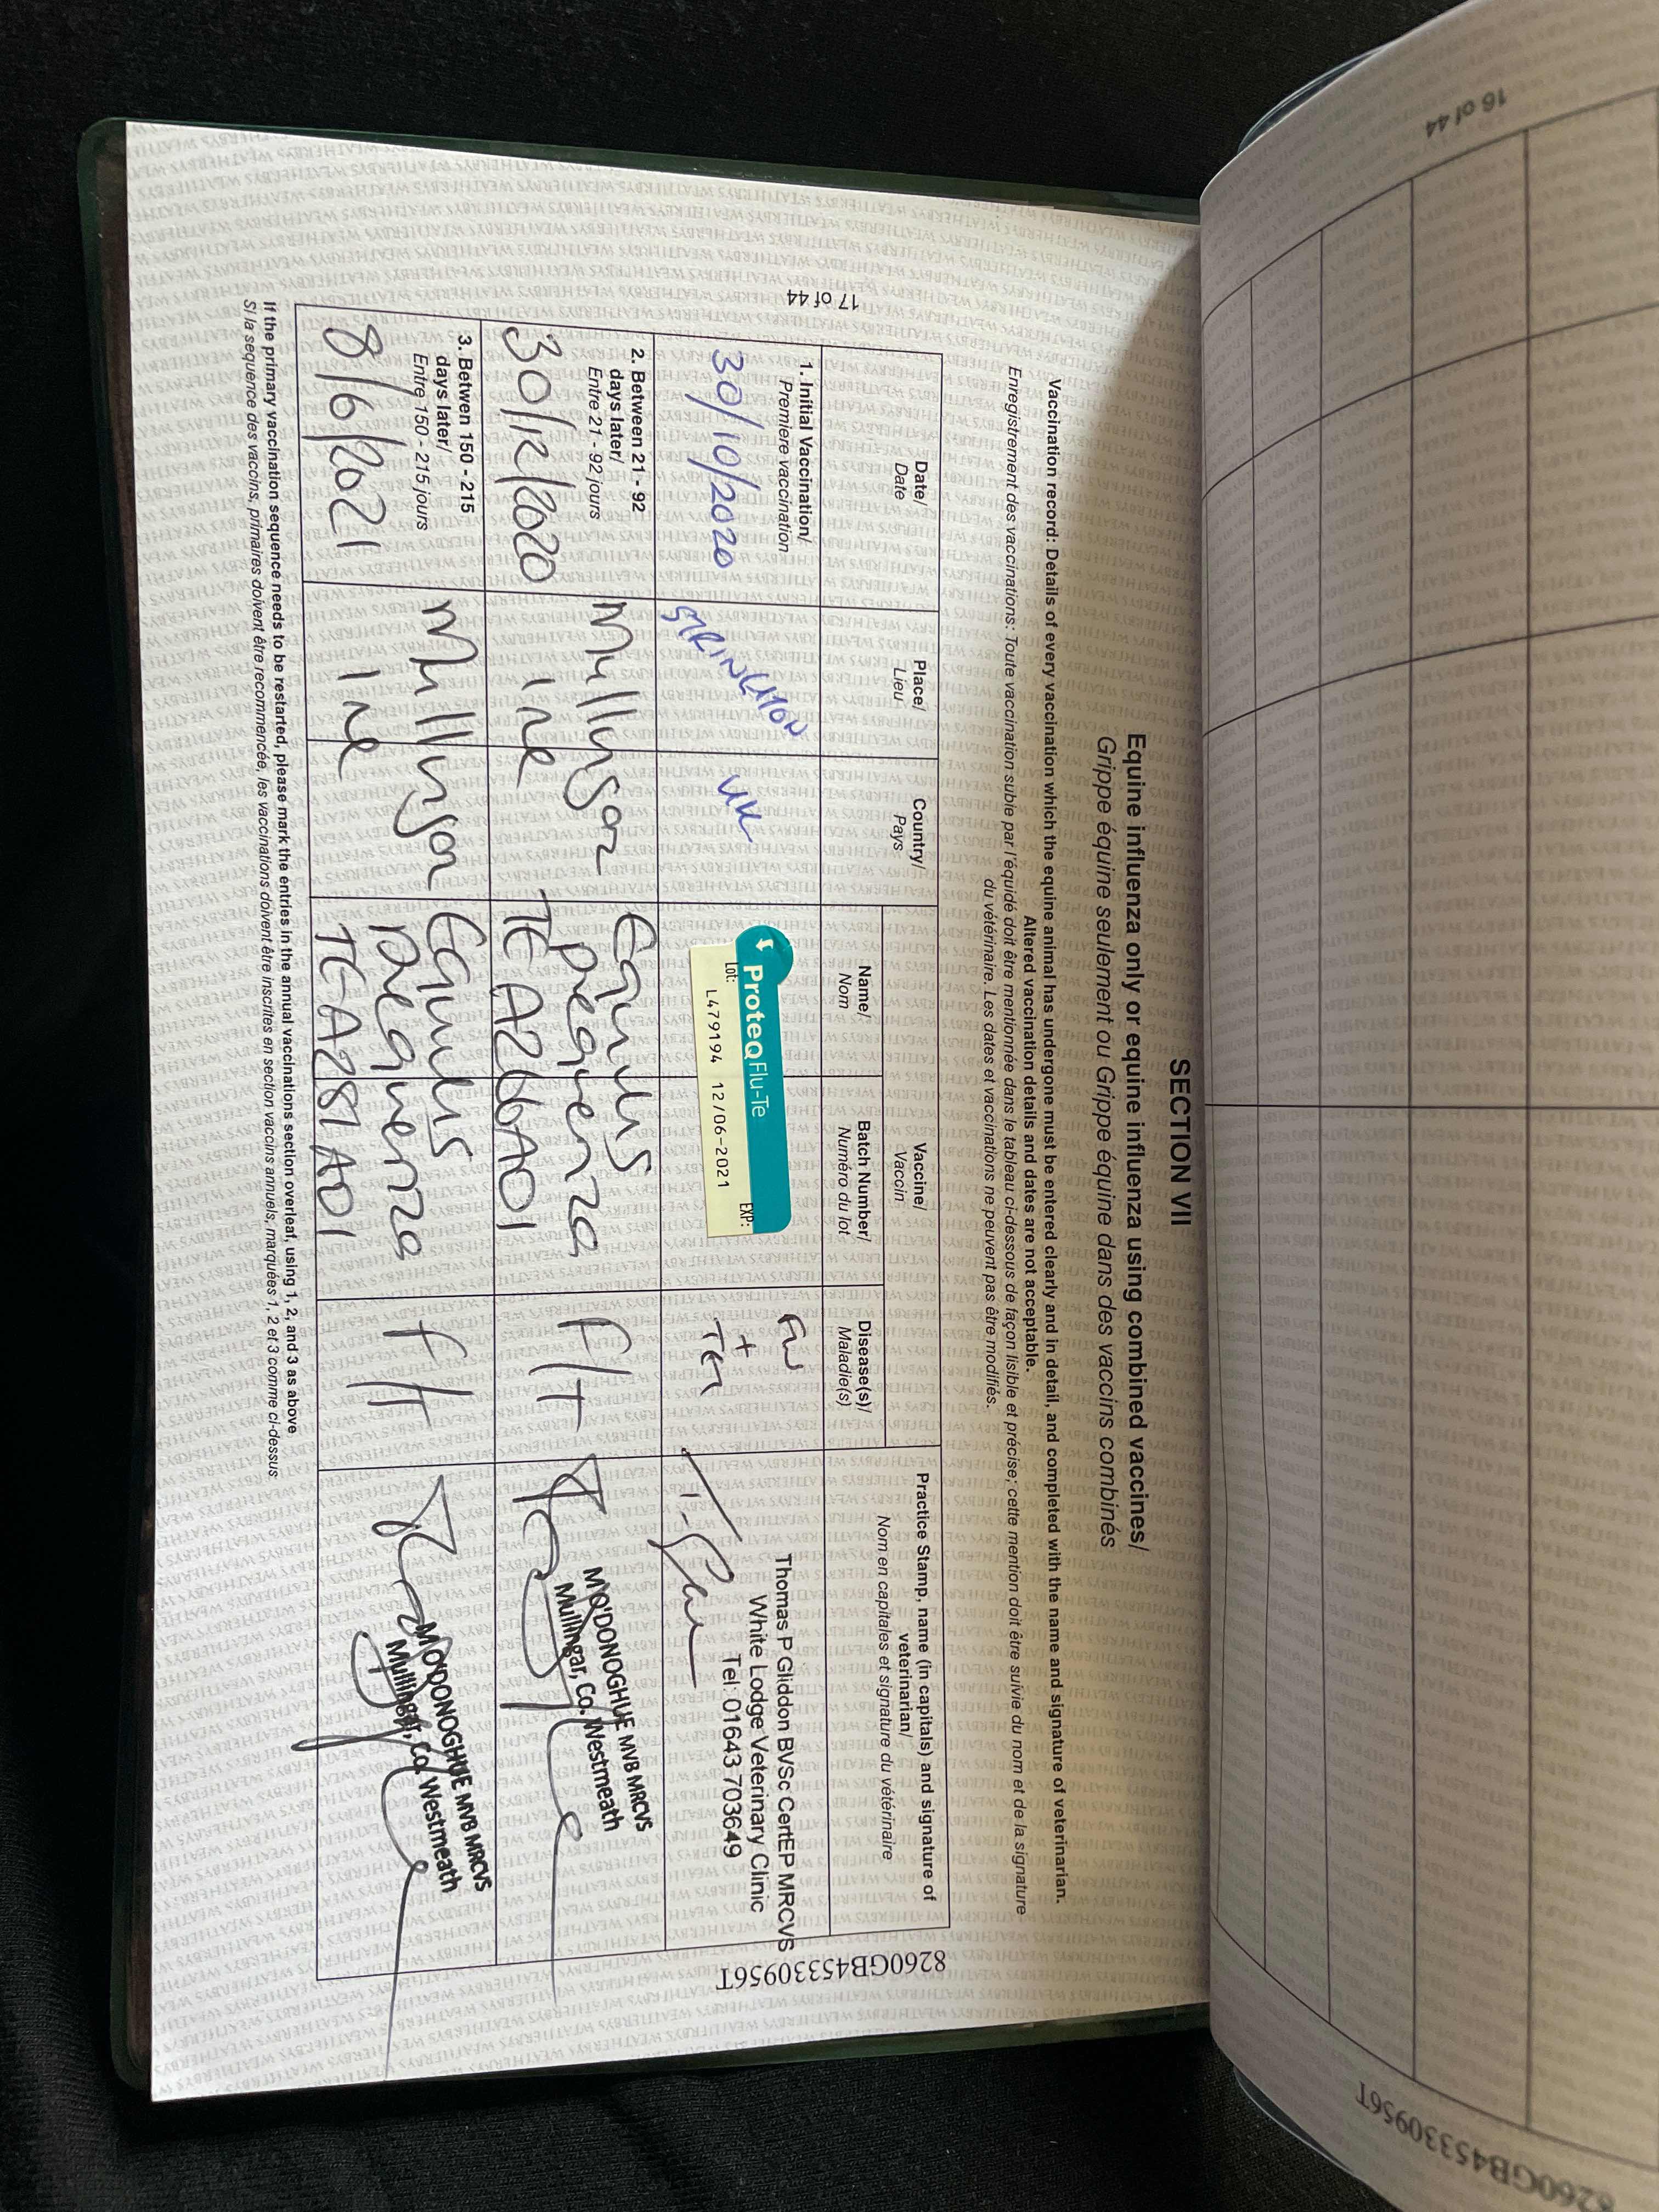 16 of 44
8260GB45330956T
SECTION VII
Equine influenza only or equine influenza using combined vaccines/
Grippe équine seulement ou Grippe équine dans des vaccins combinés
Vaccination record: Details of every vaccination which the equine animal has undergone must be entered clearly and in detail, and completed with the name and signature of veterinarian.
Altered vaccination details and dates are not acceptable.
Enregistrement des vaccinations: Toute vaccination subie par l'équidé doit être mentionnée dans le tableau ci-dessous de façon lisible et précise; cette mention doit être suivie du nom et de la signature
du vétérinaire. Les dates et vaccinations ne peuvent pas être modifiés.
Date/
Date
Place/
Lieu
Country/
Pays
Vaccine/
Vaccin
Name/
Nom
Batch Number/
Numéro du lot
Disease(s)/
Maladie(s)
Practice Stamp, name (in capitals) and signature of
veterinarian/
Nom en capitales et signature du vétérinaire
1. Initial Vaccination/
Premiere vaccination
30/10/2020
UK
ProteqFlu-Te
Lot:
EXP:
L479194 12/06-2021
Flu
+
Tet
Thomas P Gliddon BVSc CertEP MRCVS
White Lodge Veterinary Clinic
Tel: 01643 703649
2. Between 21 - 92
days later/
Entre 21 - 92 jours
30/12/2020
Mullingar
Ire
Equilis
Prequenza
TE A266A01
F/T
M O'DONOGHUE MVB MRCVS
Mullingar, Co. Westmeath
3. Betwen 150 - 215
days later/
Entre 150 - 215 jours
8/6/2021
Mullingar
Ire
Equilis
Prequenza
TE A281A01
F/T
M O'DONOGHUE MVB MRCVS
Mullingar, Co. Westmeath
If the primary vaccination sequence needs to be restarted, please mark the entries in the annual vaccinations section overleaf, using 1, 2, and 3 as above
Si la sequence des vaccins, primaires doivent être recommencée, les vaccinations doivent être inscrites en section vaccins annuels, marquées 1, 2 et 3 comme ci-dessus
17 of 44
8260GB45330956T